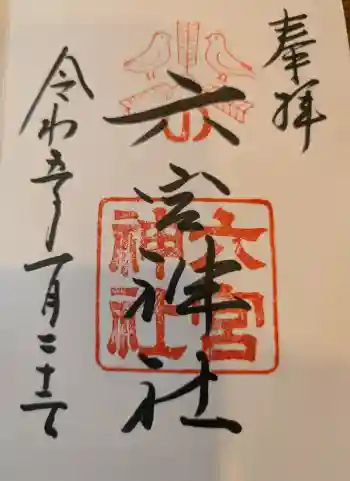 奉拝
六宮神社
六宮
神社
令和五年一月二十二日